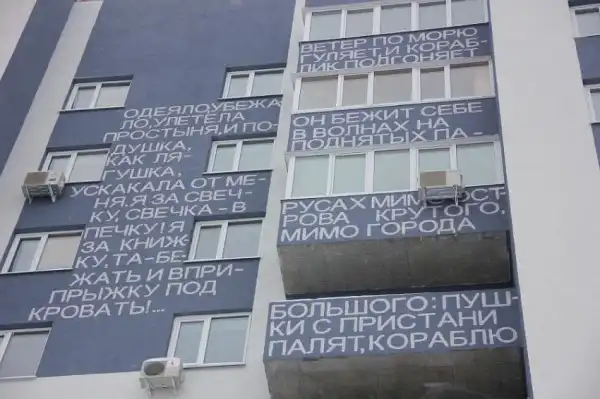 ОДЕЯЛО, УБЕЖА
ЛО, УЛЕТЕЛА
ПРОСТЫНЯ, И ПО-
ДУШКА,
КАК ЛЯ-
ГУШКА,
УСКАКАЛА ОТ МЕ-
НЯ. Я ЗА СВЕЧ-
КУ, СВЕЧКА - В
ПЕЧКУ! Я
ЗА КНИЖ-
КУ, ТА - БЕ-
ЖАТЬ И ВПРИ-
ПРЫЖКУ ПОД
КРОВАТЬ!...
ВЕТЕР ПО МОРЮ
ГУЛЯЕТ, И КОРАБ-
ЛИК ПОДГОНЯЕТ
ОН БЕЖИТ СЕБЕ
В ВОЛНАХ, НА
ПОДНЯТЫХ ПА-
РУСАХ МИМО ОСТ-
РОВА КРУТОГО,
МИМО ГОРОДА
БОЛЬШОГО: ПУШ-
КИ С ПРИСТАНИ
ПАЛЯТ, КОРАБЛЮ